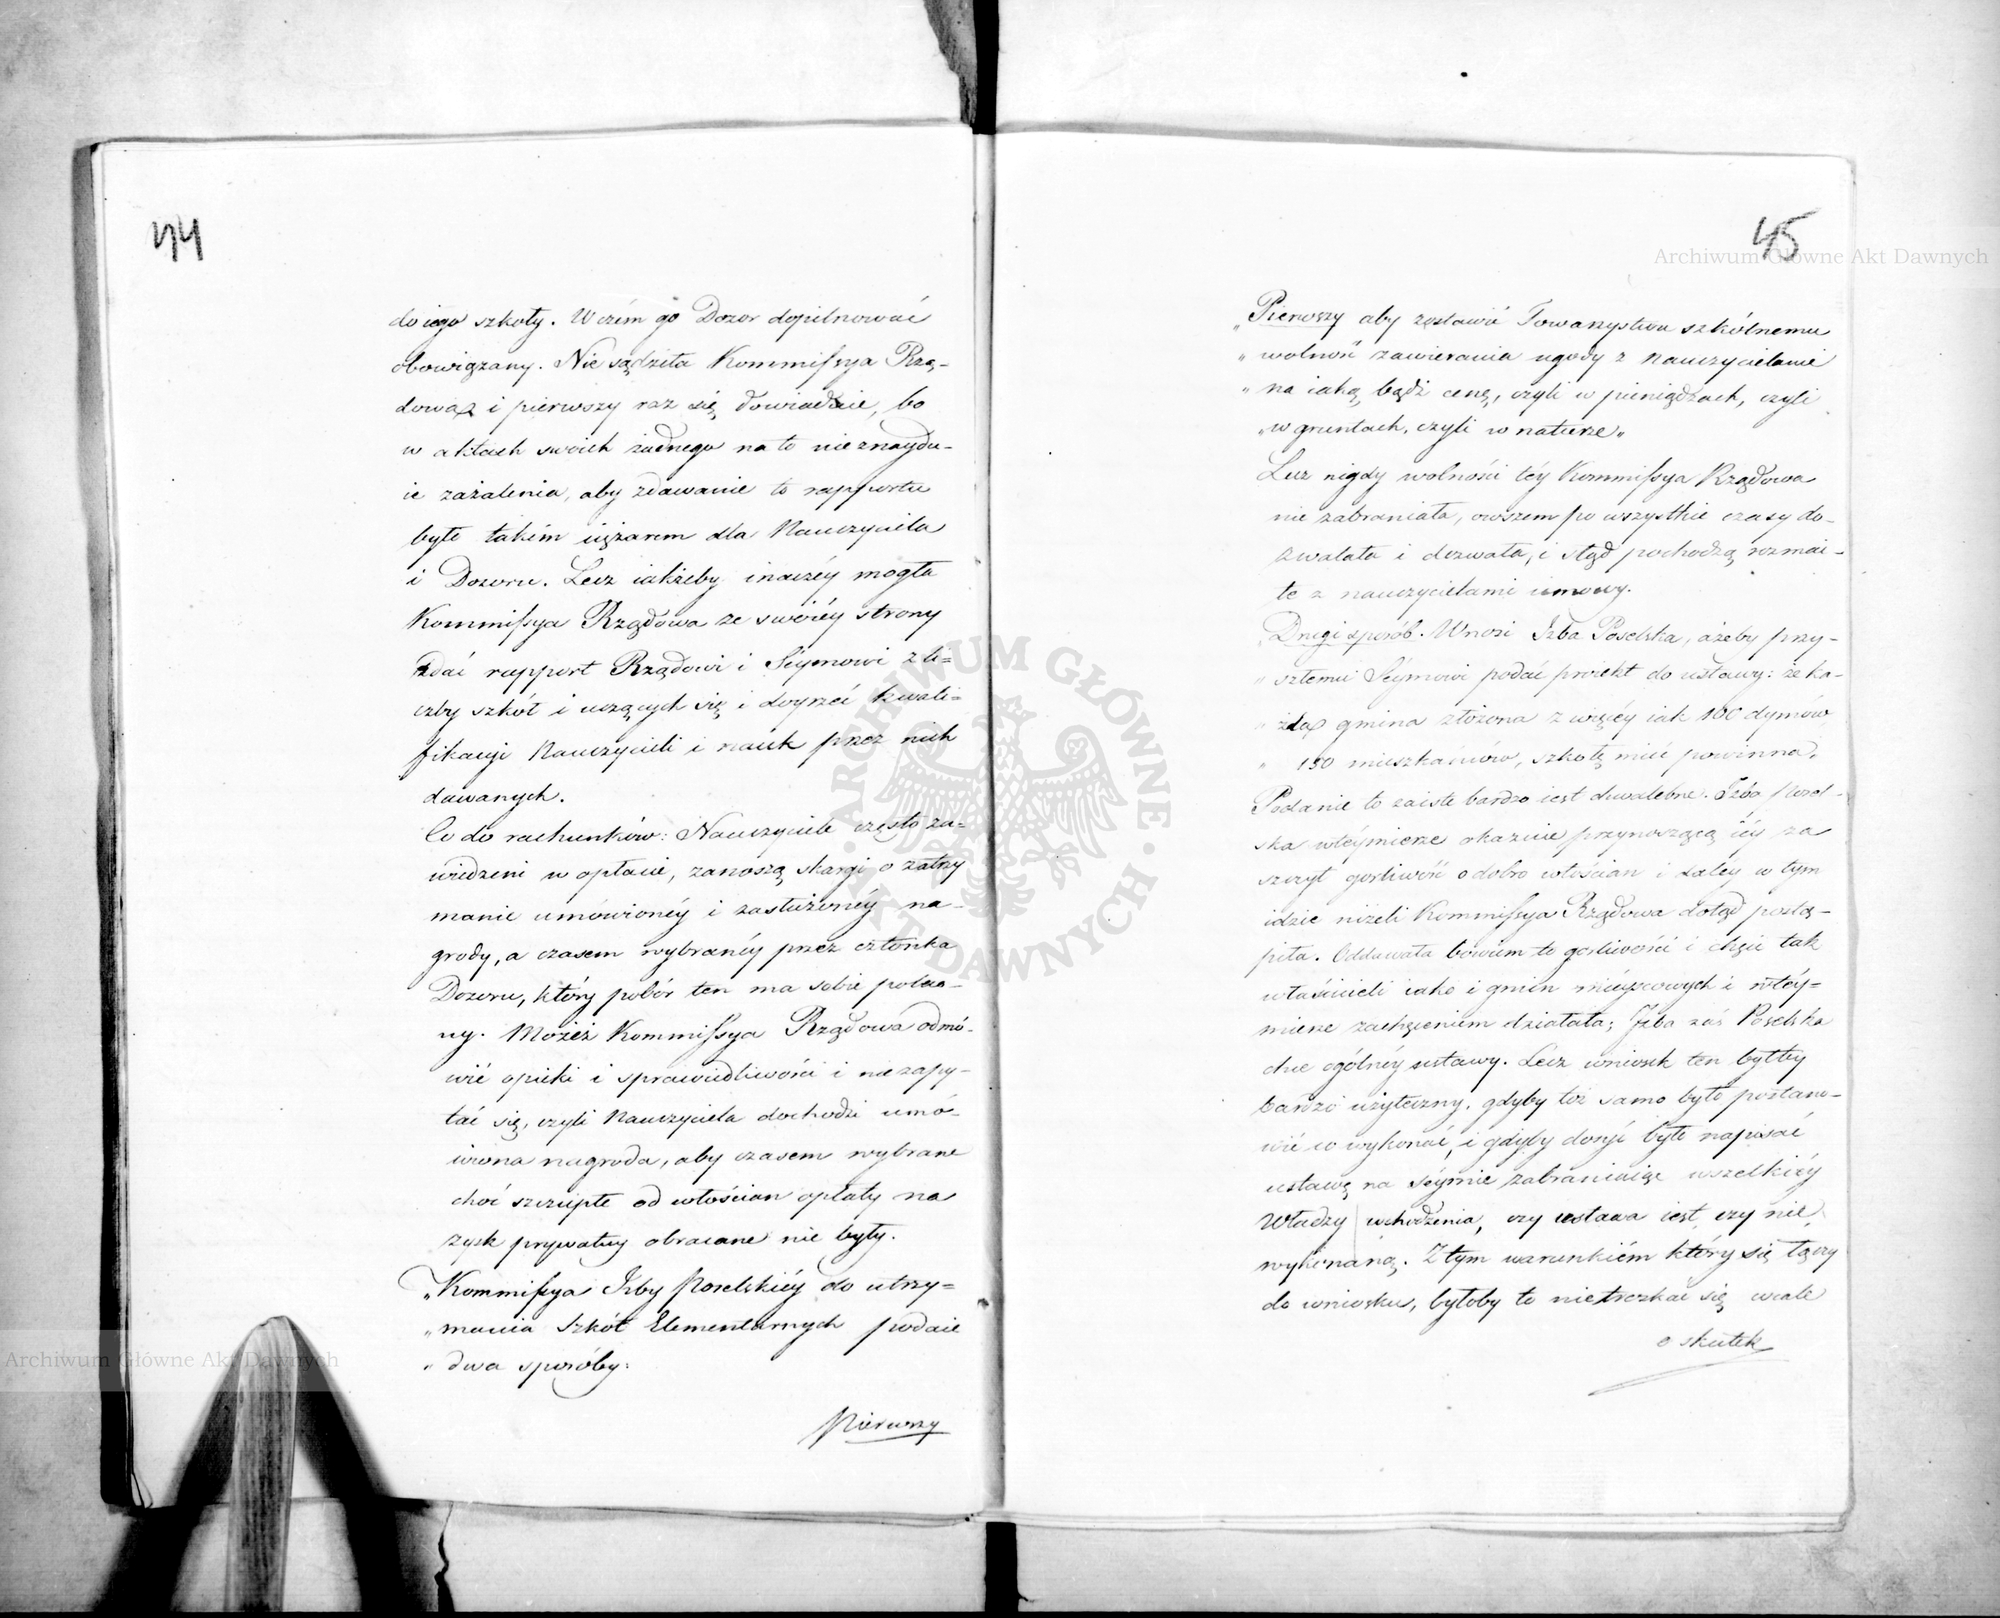 44
do iego szkoły. W czém go Dozor dopilnować
obowiązany. Nie sądziła Kommissya Rzą-
dowa i pierwszy raz się dowiaduie, bo
w aktach swoich żadnego na to nieznaydu-
ie zażalenia, aby zdawanie to rapportu
było takim ciężarem dla Nauczyciela
i Dozoru. Lecz iakżeby inaczéy mogła
Kommissya Rządowa ze swoiéy strony
zdać rapport Rządowi i Séymowi z li=
czby szkół i uczących się i doyrzeć kwali=
fikacyi Nauczycieli i nauk przez nich
dawanych.
Co do rachunków: Nauczyciele często za=
wiedzeni w opłacie, zanoszą skargi o zatrzy
manie umówionéy i zasłużonéy na-
grody, a czasem wybranéy przez członka
Dozoru, który pobór ten ma sobie poleco-
ny. Możeż Kommissya Rządowa odmó-
wić opieki i sprawiedliwości i niezapy-
tać się, czyli Nauczyciela dochodzi umó-
wiona nagroda, aby czasem wybrane
choć szczupłe od włościan opłaty na
zysk prywatny obracane nie były.
„Kommissya Izby Poselskiéy do utrzy=
„mania Szkół Elementarnych podaie
„dwa sposóby:
Pierwszy
45
„Pierwszy aby zostawić Towarzystwu szkólnemu
„wolność zawierania ugody z Nauczycielami
„na iaką bądź cenę, czyli w pieniądzach, czyli
„w gruntach, czyli w naturze„
Lecz nigdy wolności téy Kommissya Rządowa
nie zabraniała, owszem po wszystkie czasy do-
zwalała i dozwala, i stąd pochodzą rozmai-
te z nauczycielami umowy.
„Drugi sposób. Wnosi Izba Poselska, ażeby przy-
„szłemu Séymowi podać proiekt do ustawy: że ka-
„żda gmina złożona z więcéy iak 100 dymów
„150 mieszkańców, szkołę mieć powinna.
Podanie to zaiste bardzo iest chwalebne. Izba Posel-
ska w téymierze okazuie przynoszącą iéy za
szczyt gorliwość o dobro włościan i daléy w tym
idzie niżeli Kommissya Rządowa dotąd postą-
piła. Oddawała bowiem to gorliwości i chęci tak
właścicieli iako i gmin mieyscowych i w téy=
mierze zachęceniem działała; Izba zaś Poselska
chce ogólnéy ustawy. Lecz wniosek ten byłby
bardzo użyteczny, gdyby toż samo było postano-
wić co wykonać, i gdyby dosyć było napisać
ustawę na Séymie zabraniaiąc wszelkiéy
Władzy wchodzenia, czy ustawa iest, czy nie,
wykonaną. Z tym warunkiém który się łączy
do wniosku, byłoby to nietroszkać się wcale
o skutek
Archiwum Główne Akt Dawnych
Archiwum Główne Akt Dawnych
ARCHIWUM GŁÓWNE AKT DAWNYCH